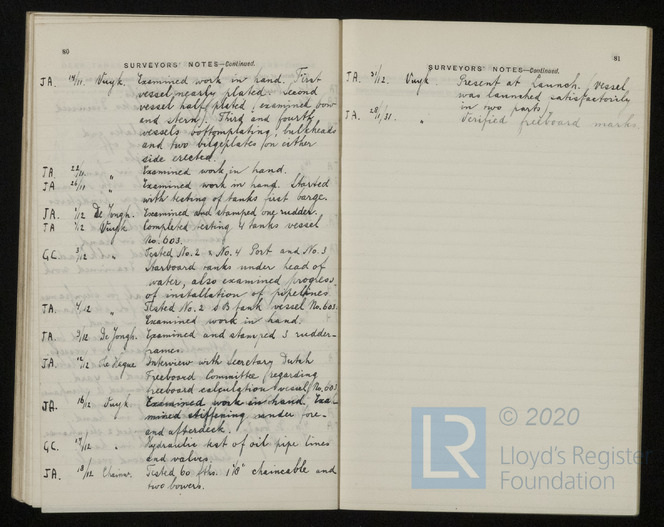 80
SURVEYORS' NOTES—Continued.
JA. 14/11. Vuyk. Examined work in hand. First
vessel nearly plated. Second
vessel half plated, examined bow
and stern. Third and fourth
vessels bottomplating, bulkheads
and two bilgeplates on either
side erected.
JA. 22/11 " Examined work in hand.
JA 26/11 " Examined work in hand. Started
with testing of tanks first barge.
JA. 1/12 De Jongh. Examined and stamped one rudder.
JA 2/12 Vuyk Completed testing 4 tanks vessel
No. 603.
G.C. 3/12 " Tested No. 2 & No. 4 Port and No. 3
Starboard tanks under head of
water, also examined progress
of installation of pipelines
JA. 4/12 " Tested No. 2 SB tank vessel No. 603.
Examined work in hand.
JA. 9/12 De Jongh. Examined and stamped 3 rudder-
frames.
JA. 12/12 The Hague Interview with Secretary Dutch
Freeboard Committee regarding
freeboard calculation vessel No. 603
JA. 16/12 Vuyk Examined work in hand. Exa-
mined stiffening under fore-
and afterdeck.
G.C. 17/12 " Hydraulic test of oil pipe lines
and valves.
JA. 18/12 Chainw. Tested 60 fths. chaincable and
two bowers.
81
SURVEYORS' NOTES—Continued.
JA. 31/12. Vuyk. Present at Launch. (Vessel
was launched satisfactorily
in two parts)
JA. 28/1/31. " Verified freeboard marks.
LR
© 2020
Lloyd's Register
Foundation